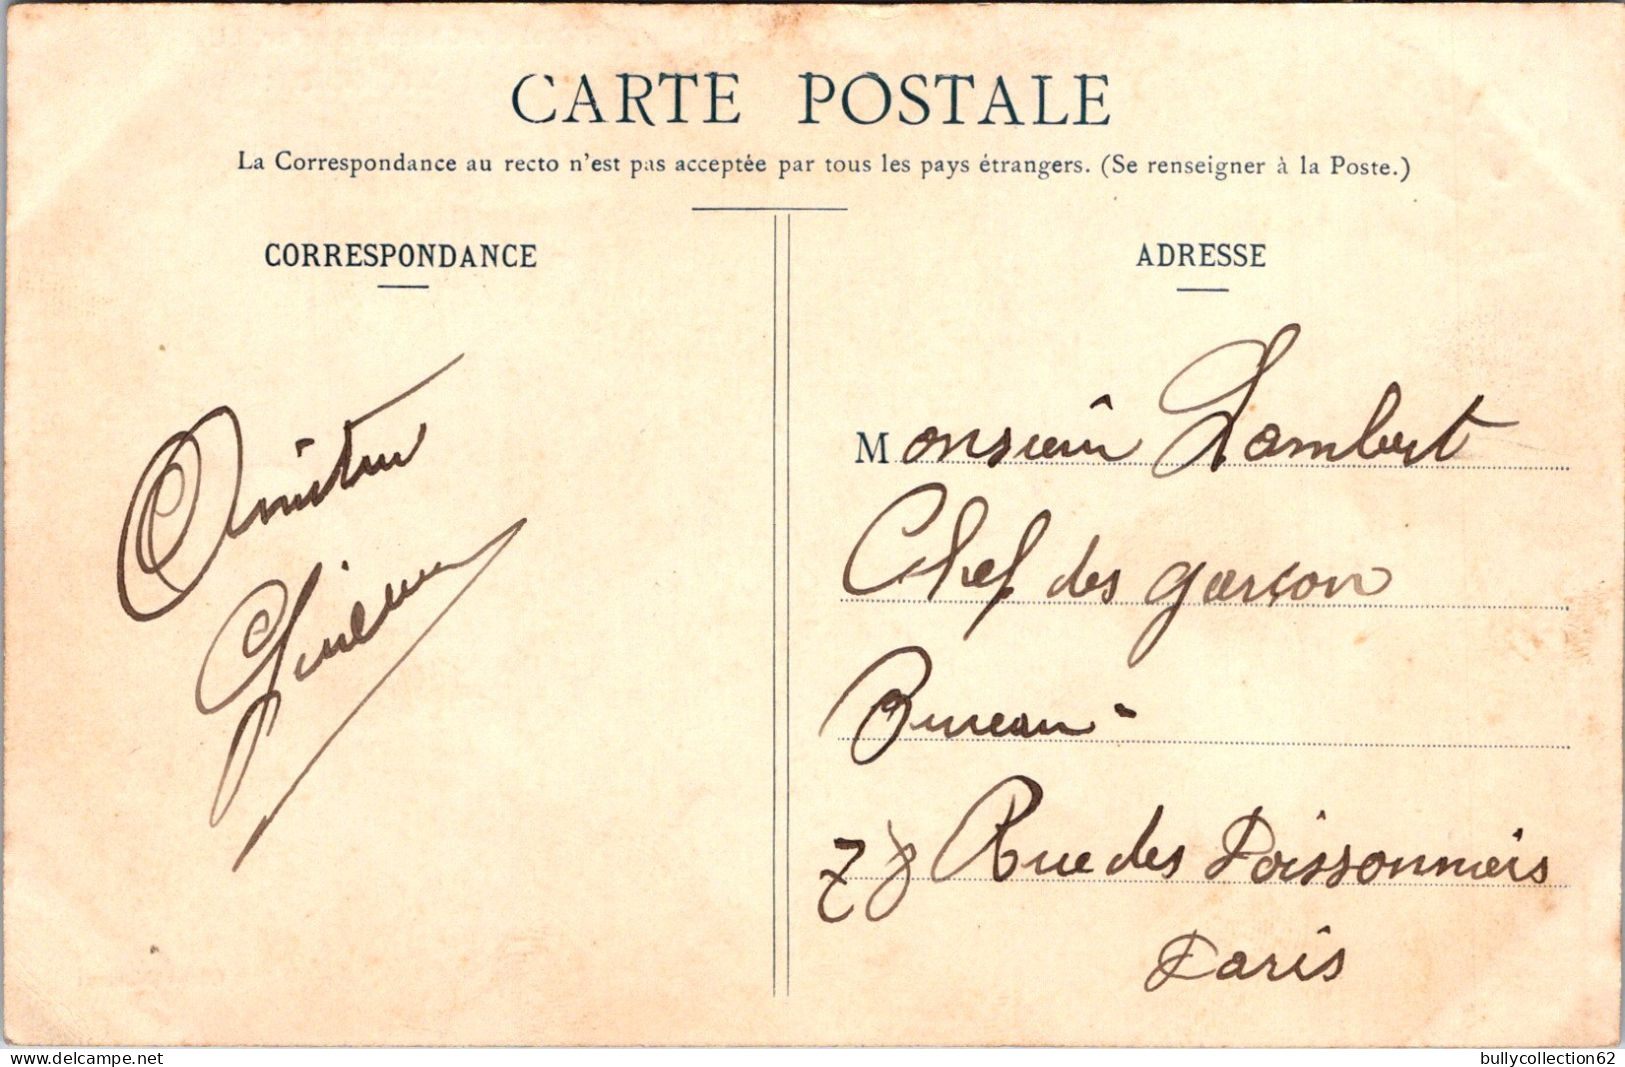 CARTE POSTALE
La Correspondance au recto n'est pas acceptée par tous les pays étrangers. (Se renseigner à la Poste.)
CORRESPONDANCE
ADRESSE
Monsieur Lambert
Chef des garçon
Bureau -
78 Rue des Poissonniers
Paris
delcampe.net
bullycollection62